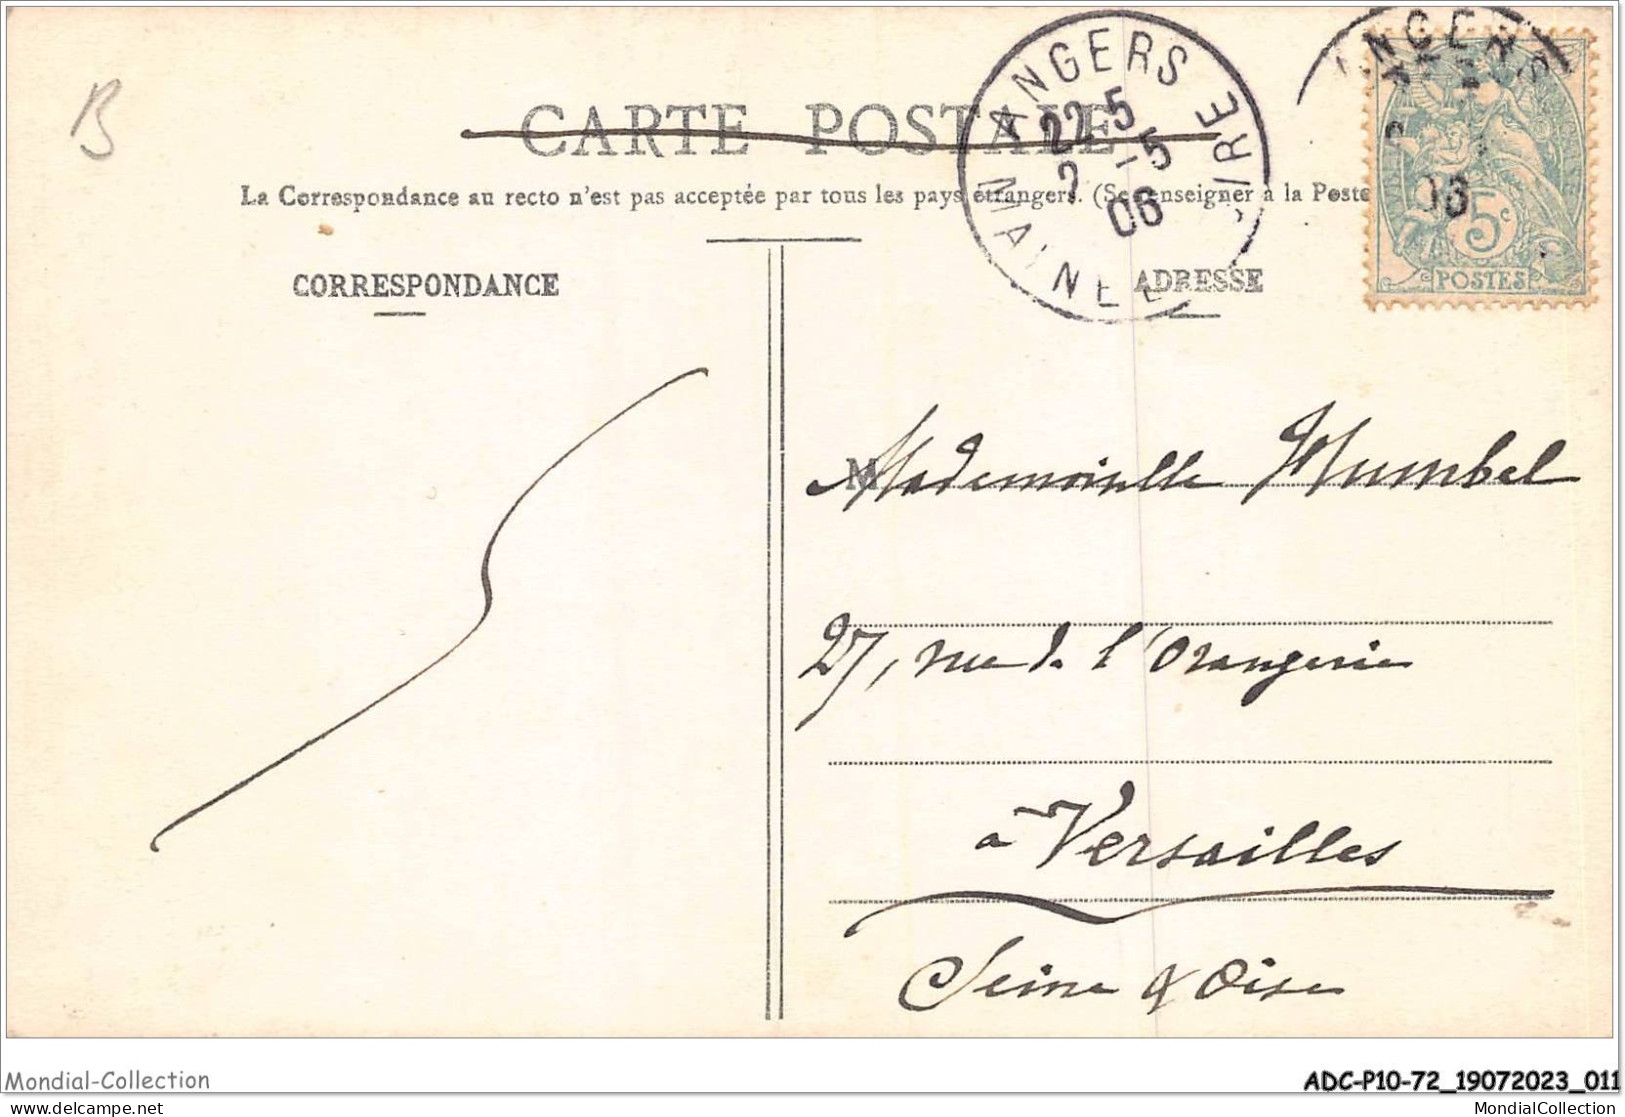 B
CARTE POSTALE
La Correspondance au recto n'est pas acceptée par tous les pays étrangers. (Se renseigner à la Poste
CORRESPONDANCE
ADRESSE
ANGERS
22-5
2 -5
06
MAINE ET LOIRE
ANGERS
06
5c
POSTES
M
Mademoiselle Humbel
27, rue de l'Orangerie
à Versailles
Seine & Oise
Mondial-Collection
ADC-P10-72_19072023_011
www.delcampe.net
MondialCollection